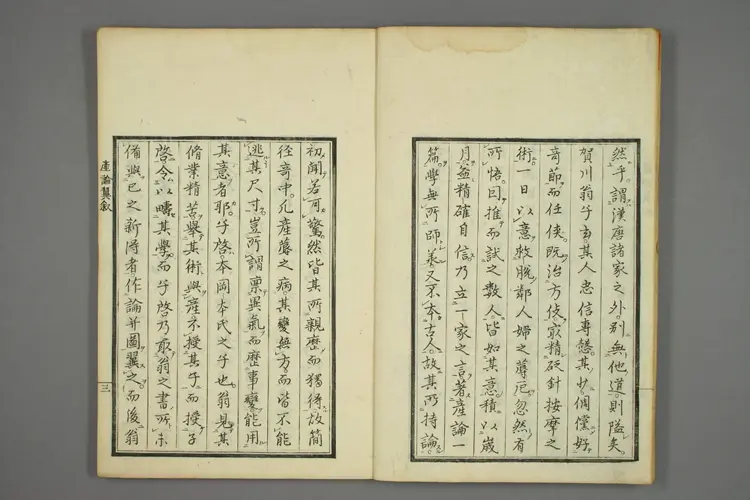 然乎謂漢唐諸家之外別無他道則隘矣
賀川翁子玄其人忠信專愨其少倜儻好
奇節而任俠既治方伎最精砭針按摩之
術一日以意救脫鄰人婦之蓐厄忽然有
所悟因推而試之數人皆如其意積以歲
月益精確自信乃立一家之言著產論一
篇學無所師承又不本古人故其所持論
初聞若可驚然皆其所親歷而獨得故簡
徑奇中凡產蓐之病其變無方而皆不能
逃其尺寸豈所謂稟異氣而歷事變能用
其意者耶子啓本岡本氏之子也翁見其
脩業精苦舉其術與產不授其子而授子
啓令以疇其學而子啓乃取翁之書所未
備與己之新得者作論并圖翼之而後翁
產論翼敘
三